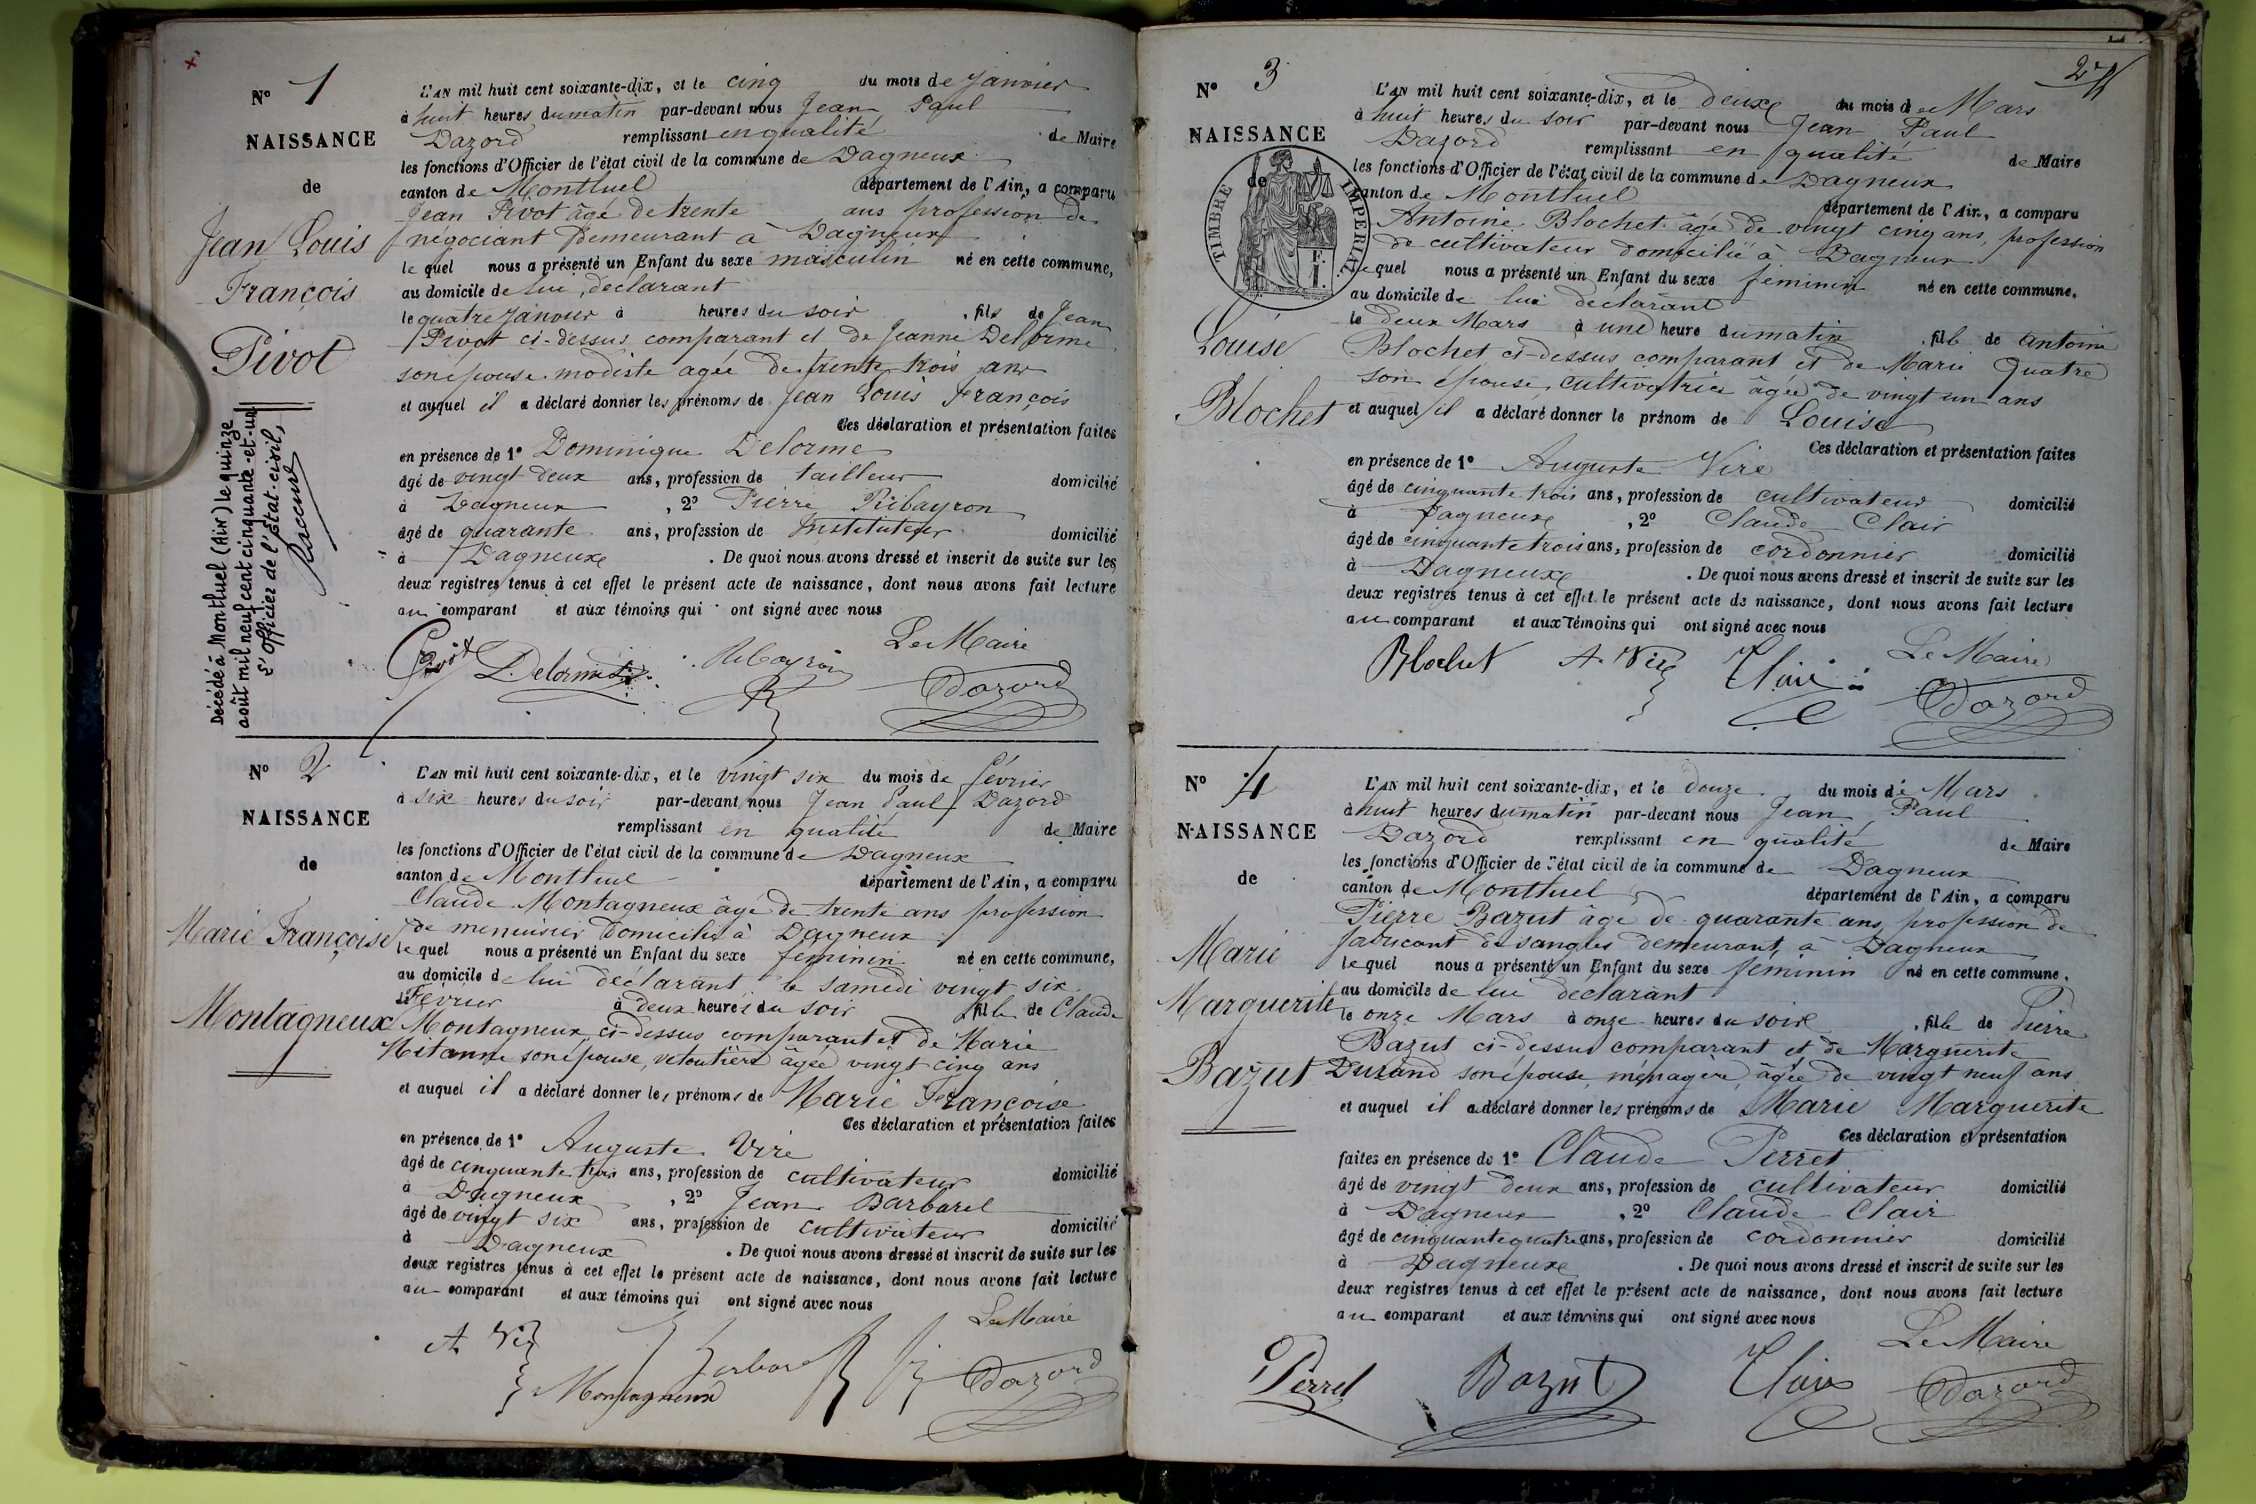 N° 1
NAISSANCE
de
Jean Louis
François
Pivot
Décédé à Montluel (Ain) le quinze
août mil neuf cent cinquante-et-un
L'Officier de l'état-civil,
L'AN mil huit cent soixante-dix, et le cinq du mois de Janvier
à huit heures du matin par-devant nous Jean Paul
Dazord remplissant en qualité de Maire
les fonctions d'Officier de l'état civil de la commune de Dagneux
canton de Montluel département de l'Ain, a comparu
Jean Pivot âgé de trente ans profession de
négociant demeurant à Dagneux
le quel nous a présenté un Enfant du sexe masculin né en cette commune,
au domicile de lui, déclarant
le quatre Janvier à heures du soir , fils de Jean
Pivot ci-dessus comparant et de Jeanne Delorme
son épouse modiste agée de trente trois ans
et auquel il a déclaré donner les prénoms de Jean Louis François
Ces déclaration et présentation faites
en présence de 1° Dominique Delorme
âgé de vingt deux ans, profession de tailleur domicilié
à Dagneux , 2° Pierre Ribayron
âgé de quarante ans, profession de Instituteur domicilié
à Dagneux . De quoi nous avons dressé et inscrit de suite sur les
deux registres tenus à cet effet le présent acte de naissance, dont nous avons fait lecture
au comparant et aux témoins qui ont signé avec nous
Le Maire
Pivot D. Delorme Ribayron Dazord
N° 2
NAISSANCE
de
Marie Françoise
Montagneux
L'AN mil huit cent soixante-dix, et le vingt six du mois de février
à six heures du soir par-devant nous Jean Paul Dazord
remplissant en qualité de Maire
les fonctions d'Officier de l'état civil de la commune de Dagneux
canton de Montluel département de l'Ain, a comparu
Claude Montagneux âgé de trente ans profession
de menuisier domicilié à Dagneux
le quel nous a présenté un Enfant du sexe féminin né en cette commune,
au domicile de lui déclarant le samedi vingt six
le Février à deux heures du soir fille de Claude
Montagneux ci-dessus comparant et de Marie
son épouse, âgée vingt cinq ans
et auquel il a déclaré donner les prénoms de Marie Françoise
Ces déclaration et présentation faites
en présence de 1° Auguste Viré
âgé de cinquante trois ans, profession de cultivateur domicilié
à Dagneux , 2° Jean Barbarel
âgé de vingt six ans, profession de cultivateur domicilié
à Dagneux . De quoi nous avons dressé et inscrit de suite sur les
deux registres tenus à cet effet le présent acte de naissance, dont nous avons fait lecture
au comparant et aux témoins qui ont signé avec nous
Le Maire
A. Viré Barbarel Dazord
Montagneux
2
N° 3
NAISSANCE
de
TIMBRE IMPERIAL
Louise
Blochet
L'AN mil huit cent soixante-dix, et le deux du mois de Mars
à huit heures du soir par-devant nous Jean Paul
Dazord remplissant en qualité de Maire
les fonctions d'Officier de l'état civil de la commune de Dagneux
canton de Montluel département de l'Ain, a comparu
Antoine Blochet âgé de vingt cinq ans, profession
de cultivateur domicilié à Dagneux
le quel nous a présenté un Enfant du sexe féminin né en cette commune.
au domicile de lui déclarant
le deux Mars à une heure du matin , fille de Antoine
Blochet ci-dessus comparant et de Marie Quatre
son épouse, cultivatrice âgée de vingt un ans
et auquel il a déclaré donner le prénom de Louise
Ces déclaration et présentation faites
en présence de 1° Auguste Viré
âgé de cinquante trois ans, profession de cultivateur domicilié
à Dagneux , 2° Claude Clair
âgé de cinquante trois ans, profession de cordonnier domicilié
à Dagneux . De quoi nous avons dressé et inscrit de suite sur les
deux registres tenus à cet effet le présent acte de naissance, dont nous avons fait lecture
au comparant et aux témoins qui ont signé avec nous
Le Maire
Blochet A. Viré Clair Dazord
N° 4
NAISSANCE
de
Marie
Marguerite
Bazut
L'AN mil huit cent soixante-dix, et le douze du mois de Mars
à huit heures du matin par-devant nous Jean Paul
Dazord remplissant en qualité de Maire
les fonctions d'Officier de l'état civil de la commune de Dagneux
canton de Montluel département de l'Ain, a comparu
Pierre Bazut âgé de quarante ans, profession de
fabricant de sangles demeurant à Dagneux
le quel nous a présenté un Enfant du sexe féminin né en cette commune.
au domicile de lui déclarant
le onze Mars à onze heures du soir , fille de Pierre
Bazut ci-dessus comparant et de Marguerite
Durand son épouse, ménagère, âgée de vingt neuf ans
et auquel il a déclaré donner les prénoms de Marie Marguerite
Ces déclaration et présentation
faites en présence de 1° Claude Perret
âgé de vingt deux ans, profession de cultivateur domicilié
à Dagneux , 2° Claude Clair
âgé de cinquante quatre ans, profession de cordonnier domicilié
à Dagneux . De quoi nous avons dressé et inscrit de suite sur les
deux registres tenus à cet effet le présent acte de naissance, dont nous avons fait lecture
au comparant et aux témoins qui ont signé avec nous
Le Maire
Perret Bazut Clair Dazord